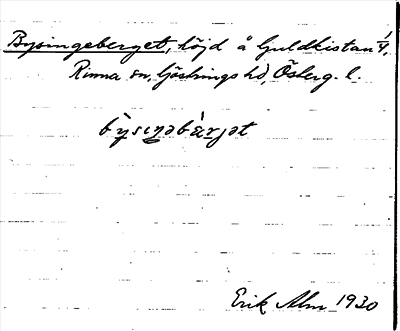 Bysingeberget, höjd å Guldkistan 1/4,
Rinna sn, Göstrings hd, Östberg. l.
bỳsiŋəbärjət
Erik Alm 1930